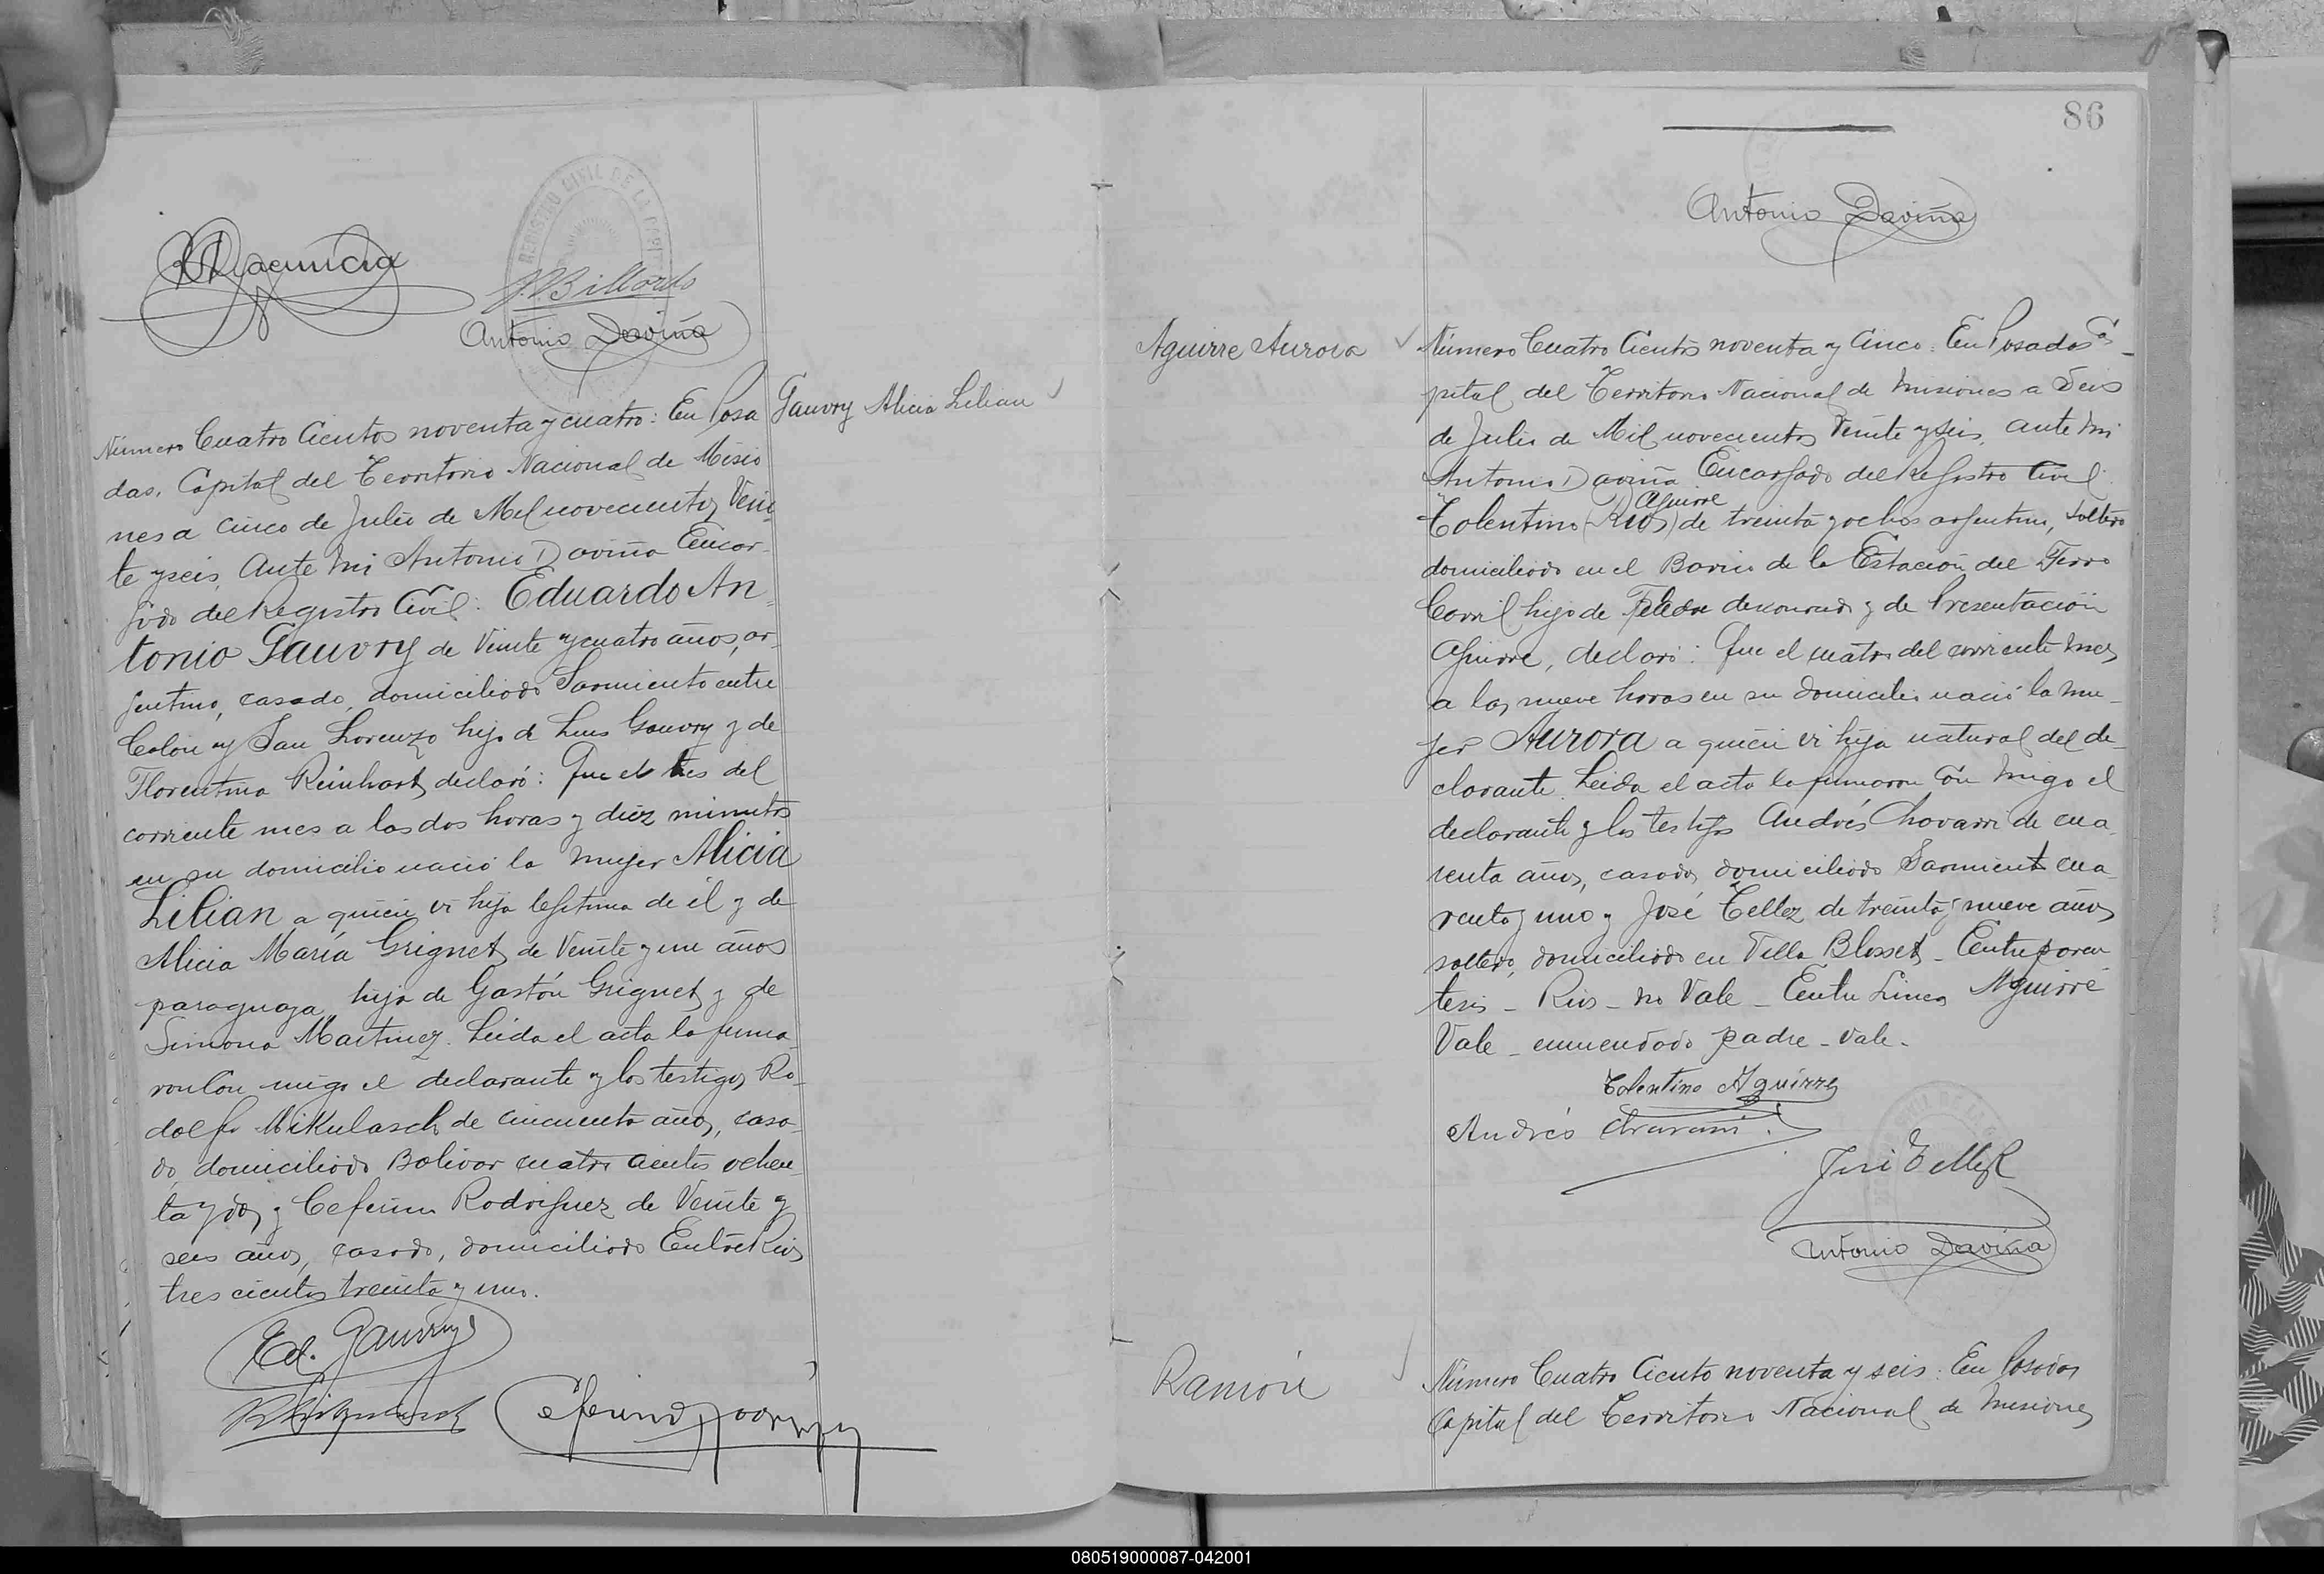 J. Billordo
Antonio Daviña
REGISTRO CIVIL DE LA
Gauvry Alicia Lilian
Número Cuatro Cientos noventa y cuatro: En Posa
das, Capital del Territorio Nacional de Misio
nes a cinco de Julio de Mil novecientos Vein
te y seis, Ante mi Antonio Daviña Encar
gado del Registro Civil: Eduardo An
tonio Gauvry de Veinte y cuatro años, ar
gentino, casado, domiciliado Sarmiento entre
Colon y San Lorenzo hijo de Luis Gauvry y de
Florentina Reinhart, declaró: Que el tres del
corriente mes a las dos horas y diez minutos
en su domicilio nació la mujer Alicia
Lilian a quien vi hija legitima de él y de
Alicia María Grignet, de Veinte y un años
paraguaya, hija de Gastón Grignet y de
Simona Martinez. Leida el acta la firma
ron con migo el declarante y los testigos Ro
dolfo Mikulasch de cincuenta años, casa
do, domiciliado Bolivar cuatro cientos ochen
ta y dos y Ceferino Rodriguez de Veinte y
seis años, casado, domiciliado Entre Rios
tres cientos treinta y uno.
Ed. Gauvry
86
Antonio Daviña
Aguirre Aurora
Número Cuatro Cientos noventa y Cinco: En Posadas Ca
pital del Territorio Nacional de Misiones a Seis
de Julio de Mil novecientos Veinte y seis, ante mi
Antonio Daviña Encargado del Registro Civil:
Aguirre
Tolentino (Rios) de treinta y ocho argentino, soltero
domiciliado en el Barrio de la Estación del Ferro
Carril hijo de padre desconocido y de Presentación
Aguirre, declaró: Que el cuatro del corriente mes
a las nueve horas en su domicilio nació la mu
jer Aurora a quien vi hija natural del de
clarante. Leida el acta la firmaron con migo el
declarante y los testigos Andrés Chavarri de cua
renta años, casado, domiciliado Sarmiento cua
renta y uno y José Tellez de treinta y nueve años
soltero, domiciliado en Villa Blosset - Entre paren
tesis - Rios - no Vale - Entre Lineas Aguirre
Vale - enmendado padre - vale.
Tolentino Aguirre
Andrés Chavarri
José Tellez
Antonio Daviña
Ramón
Número Cuatro Ciento noventa y seis: En Posadas
Capital del Territorio Nacional de Misiones
080519000087-042001